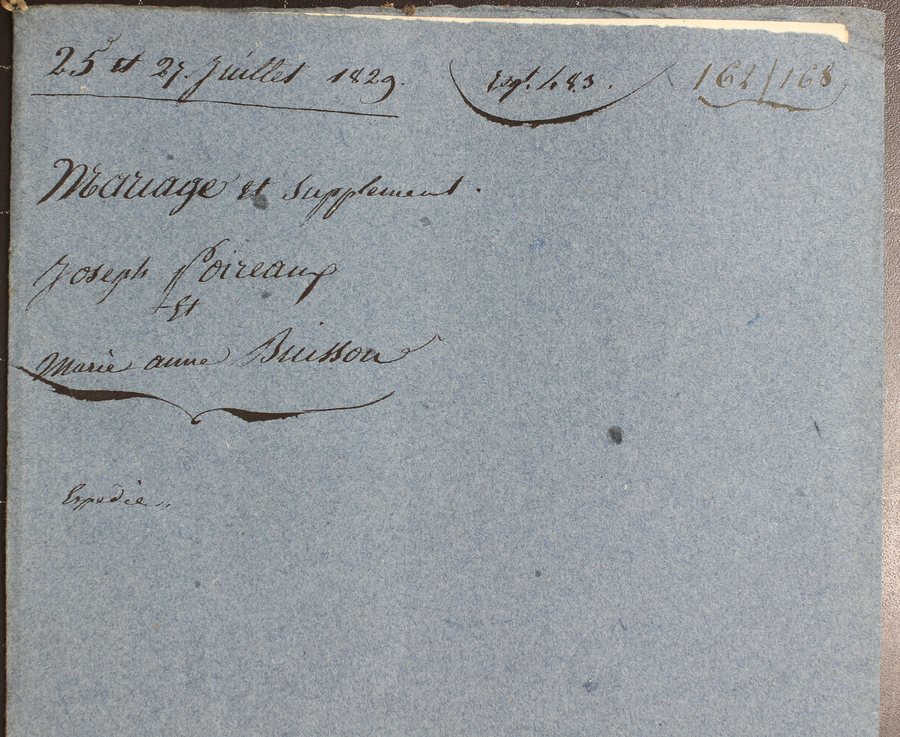 25 et 27. Juillet 1829. Rept. 483. 162/168
Mariage et Supplement.
Joseph Poireaux
Et
Marie anne Buisson
Expedie..